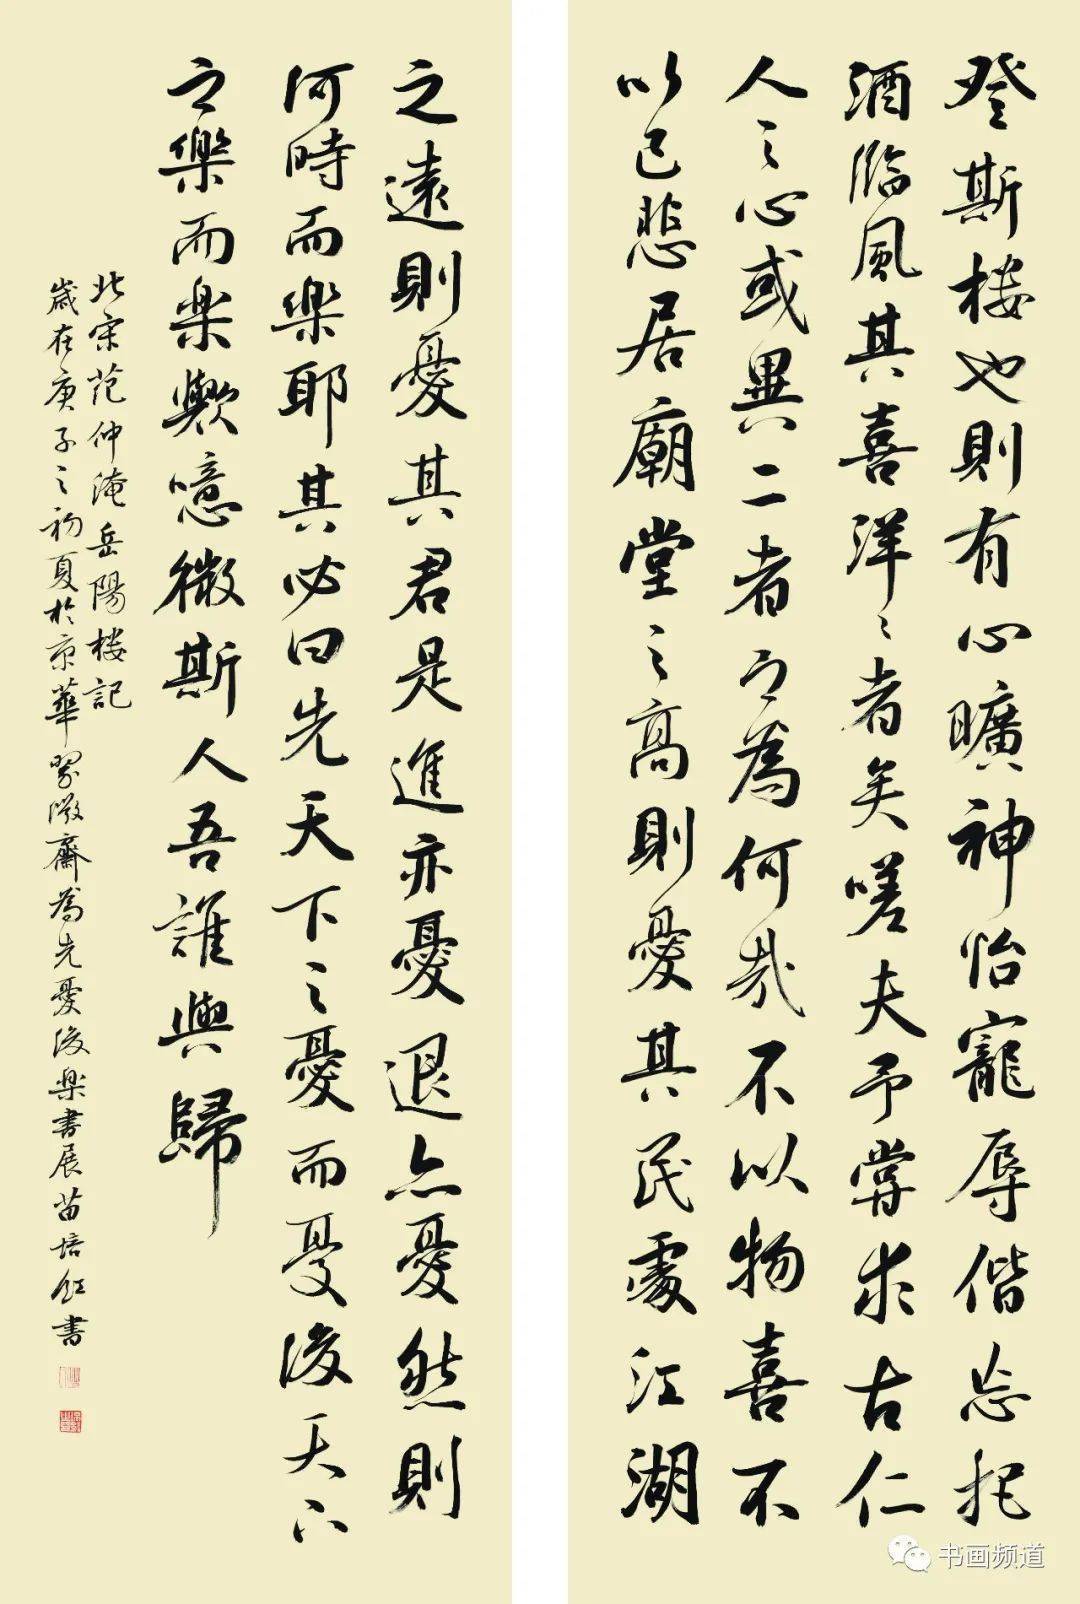 登斯楼也則有心曠神怡寵辱偕忘把
酒臨風其喜洋〻者矣嗟夫予嘗求古仁
人之心或異二者之為何哉不以物喜不
以己悲居廟堂之高則憂其民處江湖
之遠則憂其君是進亦憂退亦憂然則
何時而樂耶其必曰先天下之憂而憂後天下
之樂而樂歟噫微斯人吾誰與歸
北宋范仲淹岳陽楼記
歲在庚子之初夏於京華翠微齋為先憂後樂書展苗培紅書
书画频道